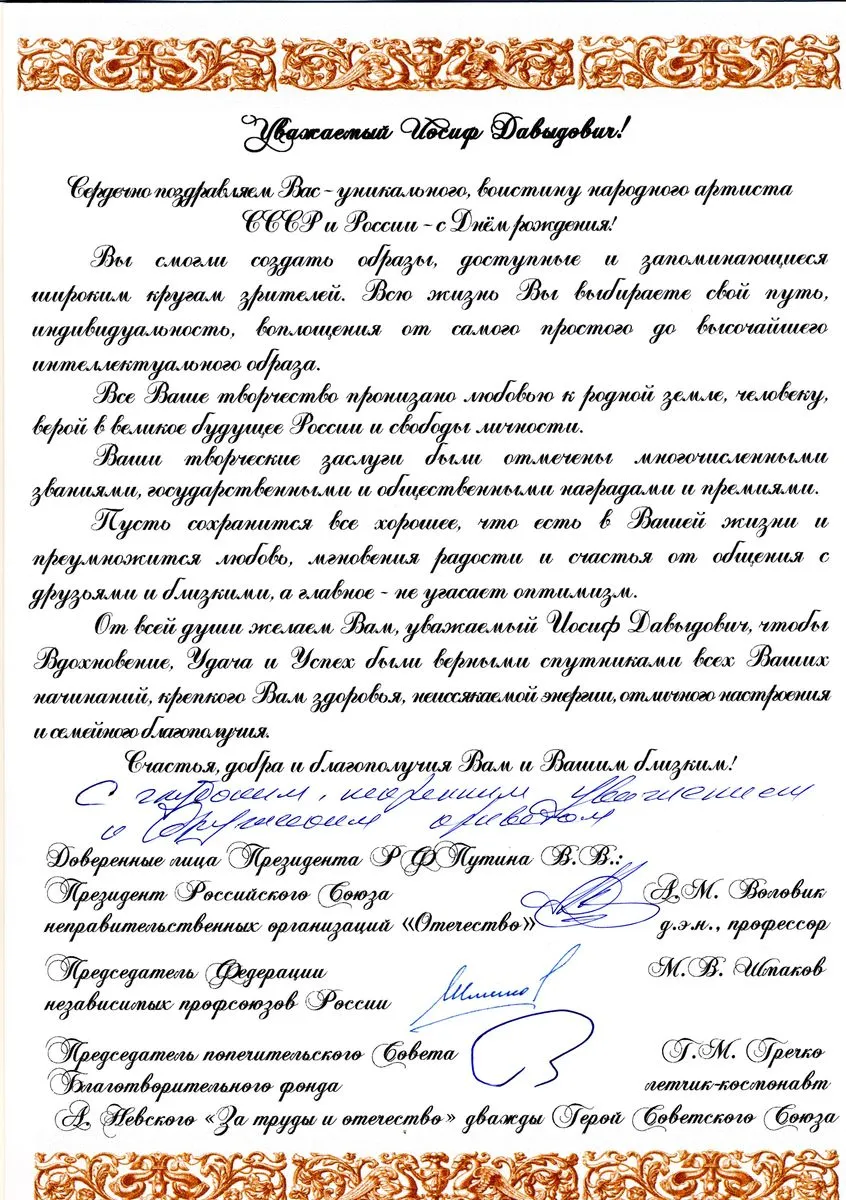 Уважаемый Иосиф Давыдович!
Сердечно поздравляем Вас - уникального, воистину народного артиста
СССР и России - с Днём рождения!
Вы смогли создать образы, доступные и запоминающиеся
широким кругам зрителей. Всю жизнь Вы выбираете свой путь,
индивидуальность, воплощения от самого простого до высочайшего
интеллектуального образа.
Все Ваше творчество пронизано любовью к родной земле, человеку,
верой в великое будущее России и свободы личности.
Ваши творческие заслуги были отмечены многочисленными
званиями, государственными и общественными наградами и премиями.
Пусть сохранится все хорошее, что есть в Вашей жизни и
преумножится любовь, мгновения радости и счастья от общения с
друзьями и близкими, а главное - не угасает оптимизм.
От всей души желаем Вам, уважаемый Иосиф Давыдович, чтобы
Вдохновение, Удача и Успех были верными спутниками всех Ваших
начинаний, крепкого Вам здоровья, неиссякаемой энергии, отличного настроения
и семейного благополучия.
Счастья, добра и благополучия Вам и Вашим близким!
С глубоким, искренним уважением
и дружеским приветом
Доверенные лица Президента РФ Путина В.В.:
Президент Российского Союза А.М. Воловик
неправительственных организаций «Отечество» д.э.н., профессор
Председатель Федерации М.В. Шмаков
независимых профсоюзов России
Председатель попечительского Совета Г.М. Гречко
Благотворительного фонда летчик-космонавт
А. Невского «За труды и отечество» дважды Герой Советского Союза